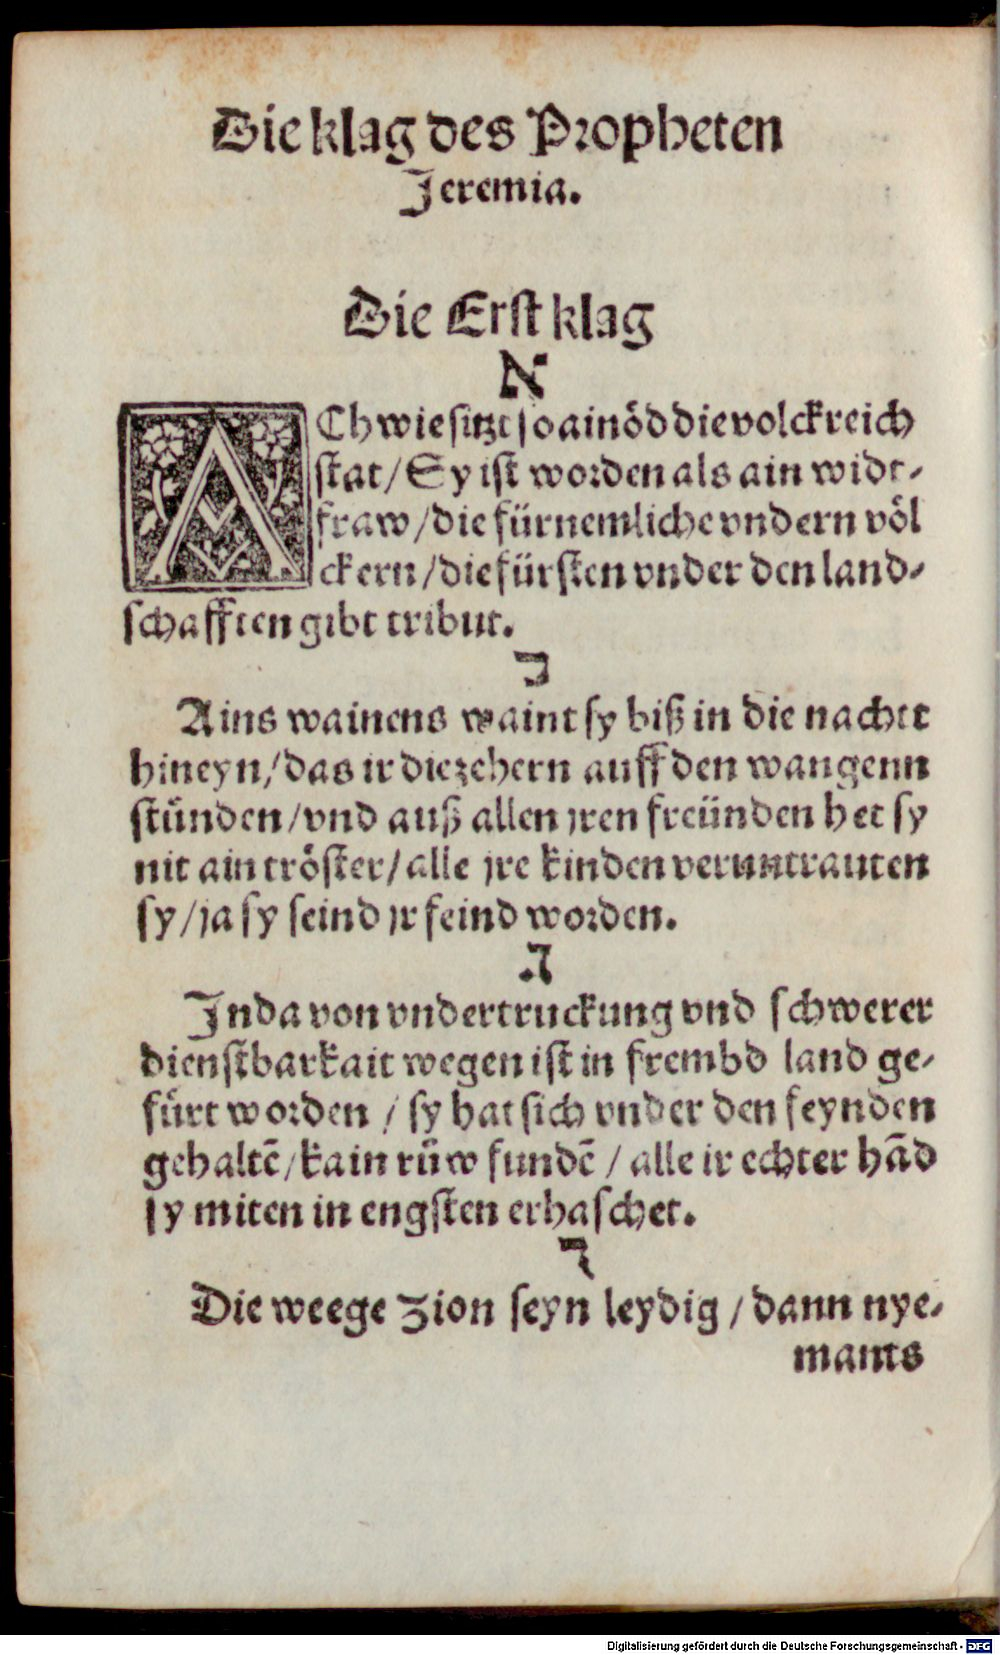 Die klag des Propheten
Jeremia.
Die Erst klag
א
ACh wie sitzt so ain öd die volckreich
stat / Sy ist worden als ain widt⸗
fraw / die fürnemliche vndern völ
ckern / die fürsten vnder den land⸗
schafften gibt tribut.
ב
Ains wainens waint sy biß in die nachtt
hineyn / das ir die zehern auff den wangenn
stůnden / vnd auß allen jren freünden het sy
nit ain tröster / alle jre kinden veruntrauten
sy / ja sy seind jr feind worden.
ג
Juda von vndertruckung vnd schwerer
dienstbarkait wegen ist in frembd land ge⸗
fürt worden / sy hat sich vnder den feynden
gehaltē / kain růw fundē / alle ir echter hād
sy miten in engsten erhaschet.
ד
Die weege Zion seyn leydig / dann nye⸗
mants
Digitalisierung gefördert durch die Deutsche Forschungsgemeinschaft - DFG